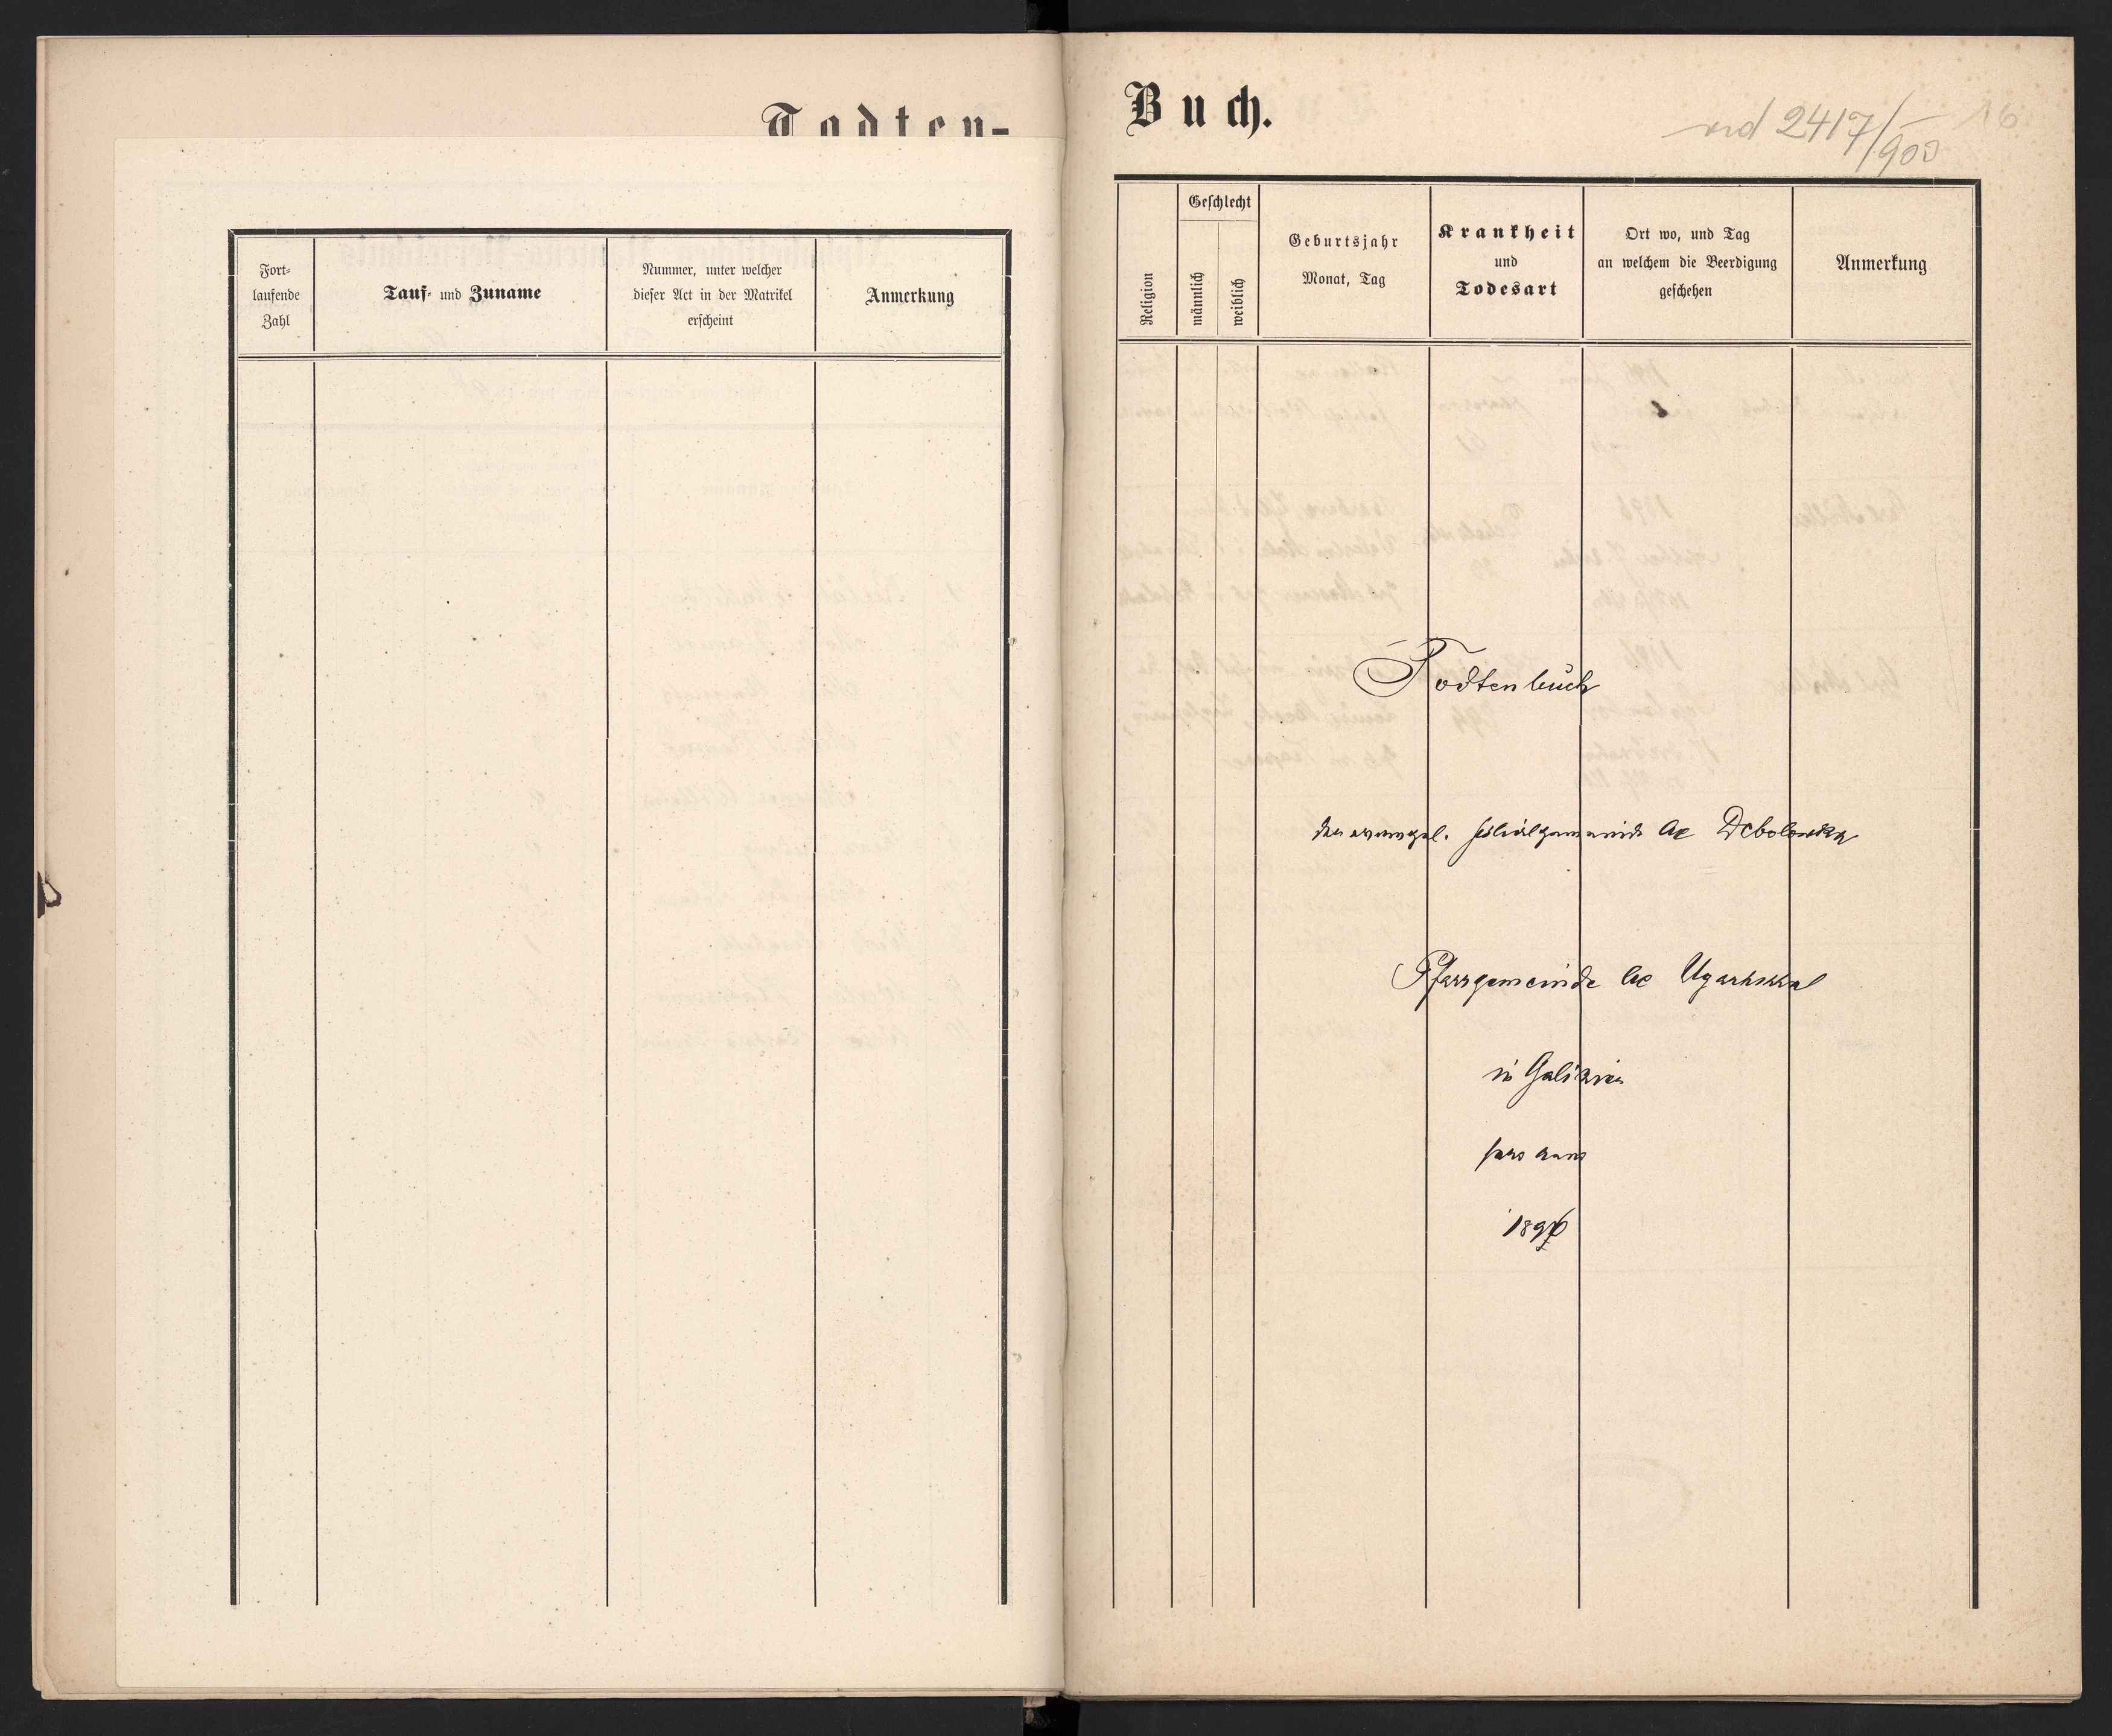 Todten-
Fort-
laufende
Zahl
Tauf- und Zuname
Nummer, unter welcher
dieser Act in der Matrikel
erscheint
Anmerkung
Buch.
ad 2417/900
16
Religion
Geschlecht
männlich
weiblich
Geburtsjahr
Monat, Tag
Krankheit
und
Todesart
Ort wo, und Tag
an welchem die Beerdigung
geschehen
Anmerkung
Todtenbuch
der evangel. Filialgemeinde Debolowka
Pfarrgemeinde Ugartsthal
in Galizien
pro anno